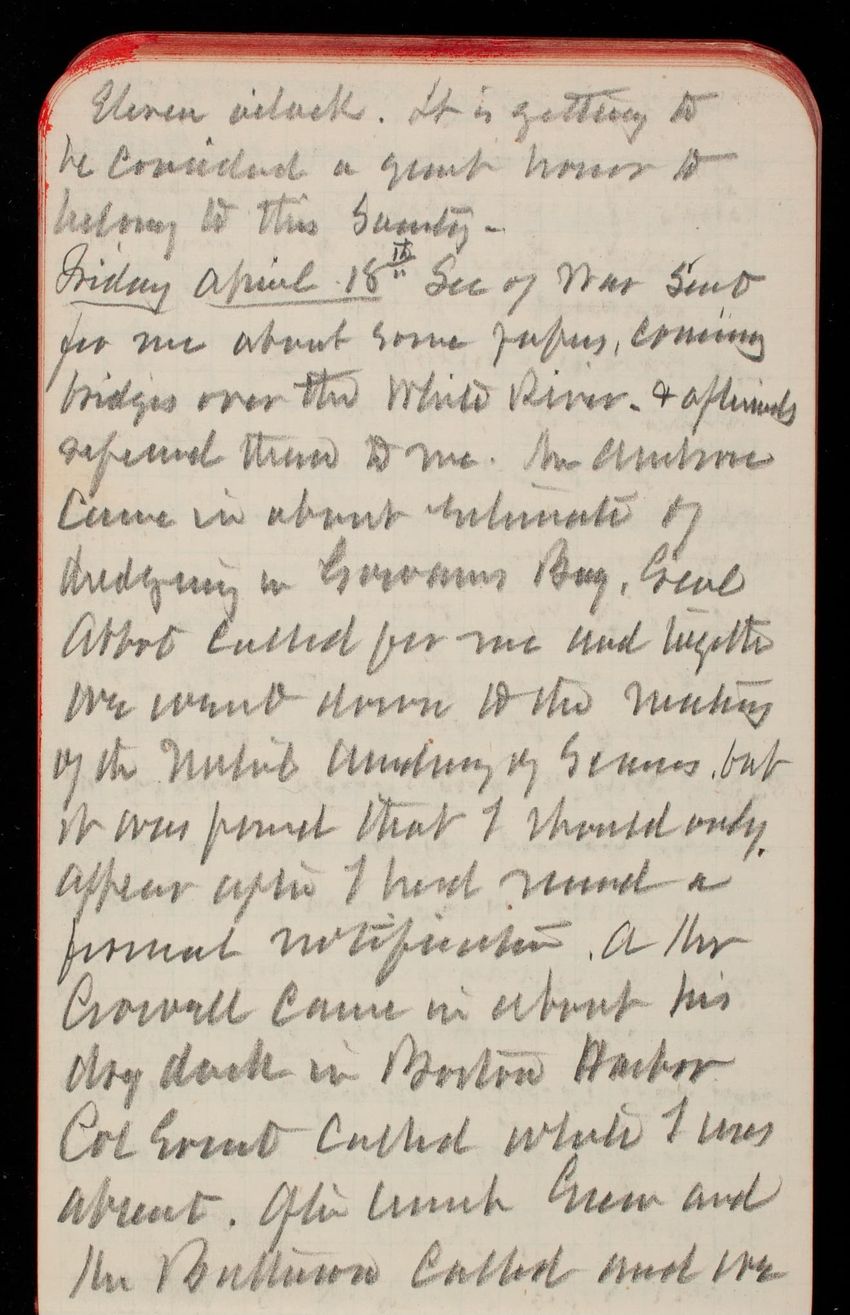 Eleven o'clock. It is getting to
be considered a great honor to
belong to this Society -
Friday April 18th Sec of War sent
for me about some papers, coming
bridges over the White River. & afterwards
referred them to me. Mr
Came in about estimate of
dredging in Gowanus Bay, Genl
Abbot called for me and together
we went down to the meeting
of the Natnl Academy of Sciences, but
it was found that I should only
appear after I had received a
formal notification. A Mr
Crowell came in about his
dry dock in Boston Harbor
Col called while I was
absent. After lunch Green and
Mr called and we